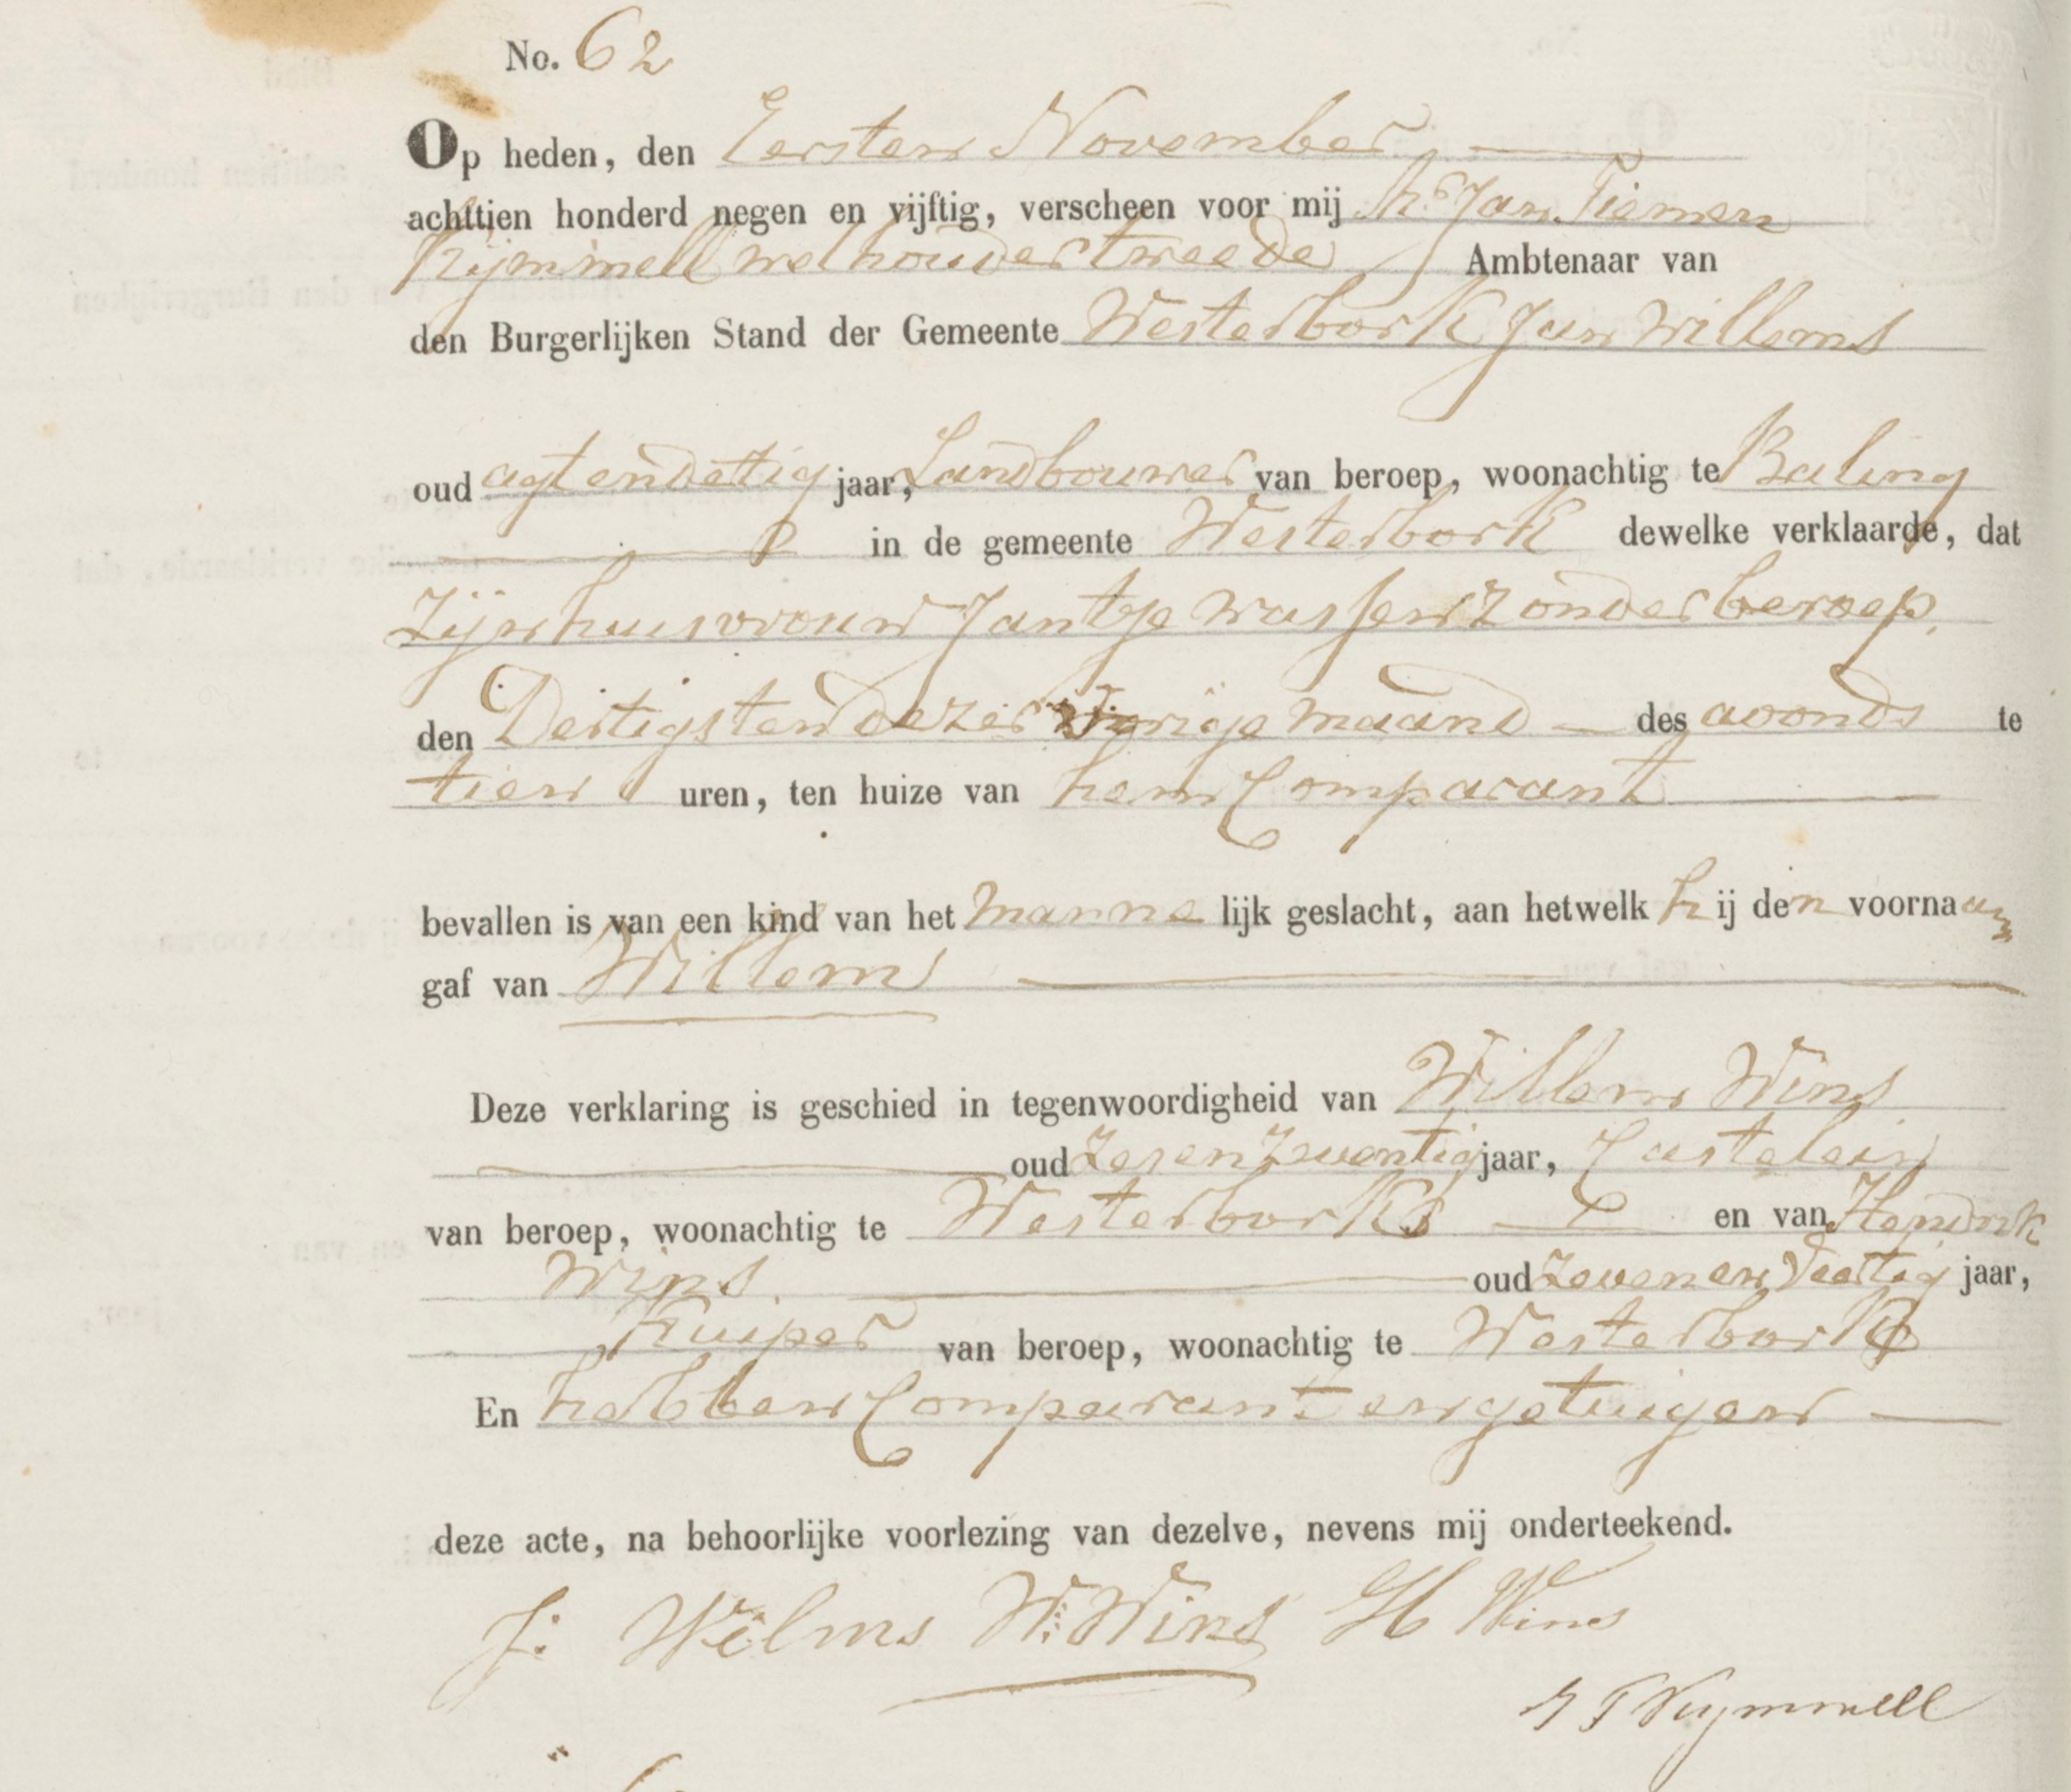 No. 62
Op heden, den Eersten November
achttien honderd negen en vijftig, verscheen voor mij Mr Jan Tiemen
Kijmmell wethouder tweede Ambtenaar van
den Burgerlijken Stand der Gemeente Westerbork Jan Willems
oud agtendertig jaar, Landbouwer van beroep, woonachtig te Baling
in de gemeente Westerbork dewelke verklaarde, dat
Zijn huisvrouw Jantje Wassen Zonder beroep
den Dertigsten dezer vorige maand des avonds te
tien uren, ten huize van hem Comparant
bevallen is van een kind van het manne lijk geslacht, aan hetwelk hij den voornaam
gaf van Willem
Deze verklaring is geschied in tegenwoordigheid van Willem Wins
oud Zesenzeventig jaar, Castelein
van beroep, woonachtig te Westerbork en van Hendrik
Wins oud Zevenen Veertig jaar,
Kuiper van beroep, woonachtig te Westerbork
En hebben Comparant en getuigen
deze acte, na behoorlijke voorlezing van dezelve, nevens mij onderteekend.
J: Wilms W: Wins H Wins
J T Kymmell